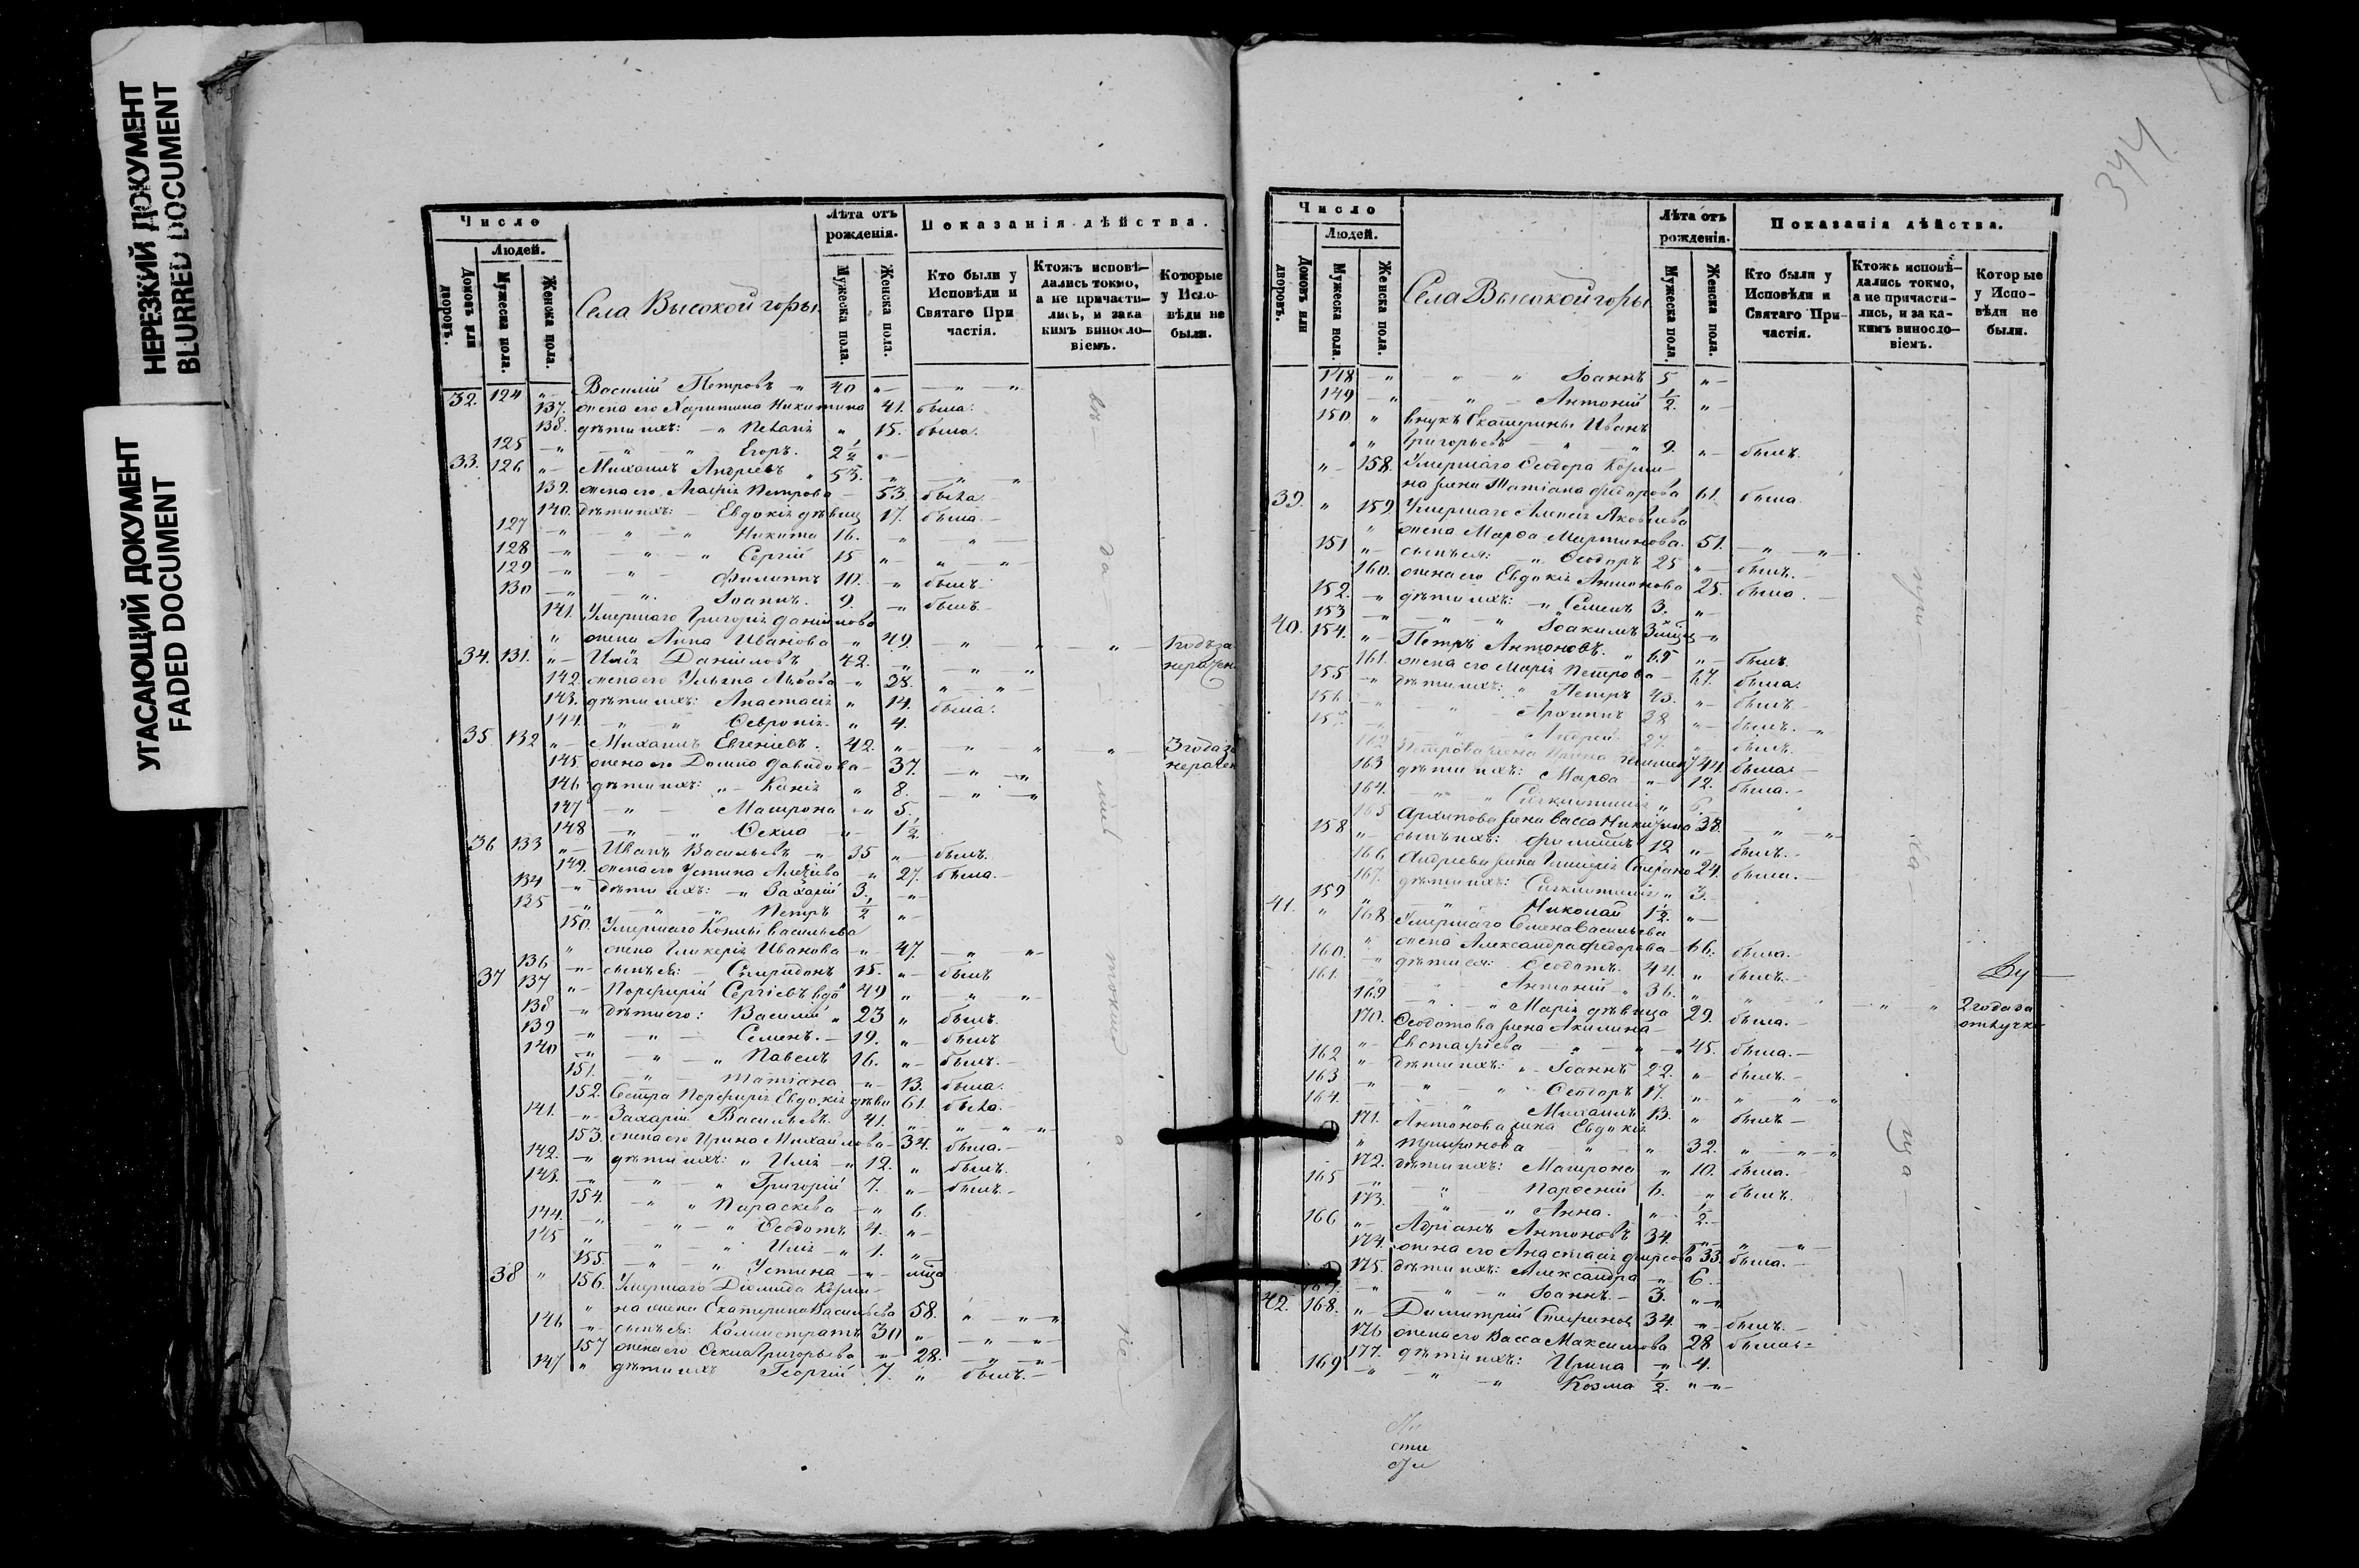 НЕРЕЗКИЙ ДОКУМЕНТ
BLURRED DOCUMENT
УГАСАЮЩИЙ ДОКУМЕНТ
FADED DOCUMENT
Число
Людей.
Домовъ или дворовъ.
Мужеска пола.
Женска пола.
Села Высокой горы
Лѣта отъ рожденія.
Мужеска пола.
Женска пола.
Показанія дѣйства.
Кто были у Исповѣди и Святаго При частія.
Ктожъ исповѣ- дались токмо, а не причасти- лись, и зака кимъ виносло- віемъ.
Которые у Испо- вѣди не были.
32. 124 „ Василій Петровъ „ 40 „ — „ — „
137. жена его Харитина Никитина 41. была.
138. дѣти ихъ: „ Пелагія „ 15. была.
125 „ „ Егоръ. 2½ „
33. 126 „ Михаилъ Андреевъ „ 53. „ „ „
139. жена его Агафія Петрова 53. была.
140. дѣти ихъ: Евдокія дѣвиц 17. была.
127 „ „ Никита 16. „ „
128 „ „ Сергій 15 „ „ „
129 „ „ Филиппъ 10. „ былъ
130 „ „ Іоаннъ. 9. „ былъ.
141. Умершаго Григорія Данилова
„ жена Анна Иванова „ 49. „ „ „ 1 годъ за
34. 131. „ Илія Даниловъ 42. „ „ „ нерачен
142. жена его Ульяна Львова „ 38. „ „
143. дѣти ихъ: Анастасія „ 14. была.
144. „ „ Февронія „ 4.
35. 132 „ Михаилъ Евгеніевъ. 42. „ „ „ „ 3 года за
145. жена его Домна Давидова 37. „ „ нерачен
146 дѣти ихъ: „ Ксенія „ 8. „ „
147 „ Матрона „ 5.
148 „ „ Фекла „ 1½
36 133 „ Иванъ Васильевъ „ 35 „ былъ.
149. жена его Устина „ 27. была.
134 „ дѣти ихъ: „ Захарій 3. „
135 „ „ Петръ ½ „
150. Умершаго Козмы Васильева
„ жена Гликерія Иванова „ 47. „ „
136 „ сынъ ея: Спиридонъ 15. „ былъ
37 137 „ Порфирій Сергіевъ вдо 49 „ „ „
138 „ дѣти его: Василій „ 23 „ былъ.
139 „ „ Семенъ. 19. „ былъ
140 „ „ Павелъ 16. „ былъ.
151. „ Татіана „ 13. была.
152. Сестра Порфирія Евдокія дѣви 61. была.
141. „ Захарій Васильевъ. 41. „ „ „
153. жена его Ирина Михайлова 34. была.
142. „ дѣти ихъ: „ Илія „ 12. „ былъ.
143. „ „ Григорій 7. „ былъ.
154. „ „ Параскева „ 6.
144. „ „ Феодотъ 4. „
145 „ „ Илія „ 1. „
155. „ „ Устина „
38 „ 156. Умершаго Діомида Козми-
„ на жена Екатерина Васильева 58. „ „
146 „ сынъ ея: Каллистратъ 30 „ „ „
157 жена его Фекла Григорьева „ 28. „ „
147 „ дѣти ихъ Георгій 7. „ былъ.
344
Число
Людей.
Домовъ или дворовъ.
Мужеска пола.
Женска пола.
Села Высокой горы
Лѣта отъ рожденія.
Мужеска пола.
Женска пола.
Показанія дѣйства.
Кто были у Исповѣди и Святаго При- частія.
Ктожъ исповѣ- дались токмо, а не причасти- лись, и за ка- кимъ виносло- віемъ.
Которые у Испо- вѣди не были.
148 „ „ „ Іоаннъ 5 „
149 „ „ Антоній ½. „
150 „ внукъ Екатерины Иванъ
„ Григорьевъ „ 9. „ былъ.
„ 158. Умершаго Феодора Козми-
на жена Татіана Федорова 61. была.
39. „ 159. Умершаго Алексія Яковлева
„ жена Марфа Мартинова. 51. „ „
151 „ сынъ ея: „ Феодоръ 25 „ былъ.
160. жена его Евдокія Антонова 25. была.
152. „ дѣти ихъ: „ Семенъ 3. „
153 „ „ Іоакимъ „
40. 154. „ Петръ Антоновъ. „ 65 „ былъ.
161. жена его Марія Петрова 67. была.
155 „ дѣти ихъ: „ Петръ 43. „ былъ.
156. „ „ Архиппъ 38 „ былъ.
157. „ „ Андрей 27. „ былъ.
162 Петрова жена Ирина 44. была.
163 дѣти ихъ: Марфа „ 12. была.
164. „ „ Сигклитикія „ 6.
165 Архипова жена Васса Никифорова 38. „ „
158 „ сынъ ихъ: Филиппъ 12 „ былъ.
166 Андреева жена Гликерія 24. была.
167. дѣти ихъ: Сигклитикія „ 3.
159 „ „ Николай 1½. „
41. „ 168. Умершаго Семена Васильева
„ жена Александра Федорова 66. была.
160. „ дѣти ея: Феодотъ. 44. „ былъ.
161. „ Антоній „ 36. „ „ „ „ 2 года за
169 „ „ Марія дѣвица 29. была. отлучк
170. Феодотова жена Акилина
Евстафіева „ „ 45. была.
162 „ дѣти ихъ: „ Іоаннъ 22. „ былъ.
163 „ „ 17. „ „ „
164. „ „ Михаилъ 13. „ былъ
171. Антонова жена Евдокія
„ Трифонова „ 32. „ „
172. дѣти ихъ: Матрона „ 10. была.
165 „ „ Парфеній 6. „ былъ.
173. „ „ Анна. „ ½
166 „ Адріанъ Антоновъ 34. „ „ „
174. жена его Анастасія Фирсова 33. была.
175. дѣти ихъ: Александра „ 6.
167. „ „ Іоаннъ. 3. „
42. 168. „ Димитрій 34. „ былъ.
176 жена его Васса Максимова 28 была
177. дѣти ихъ: Ирина „ 4.
169 „ „ Козма ½. „